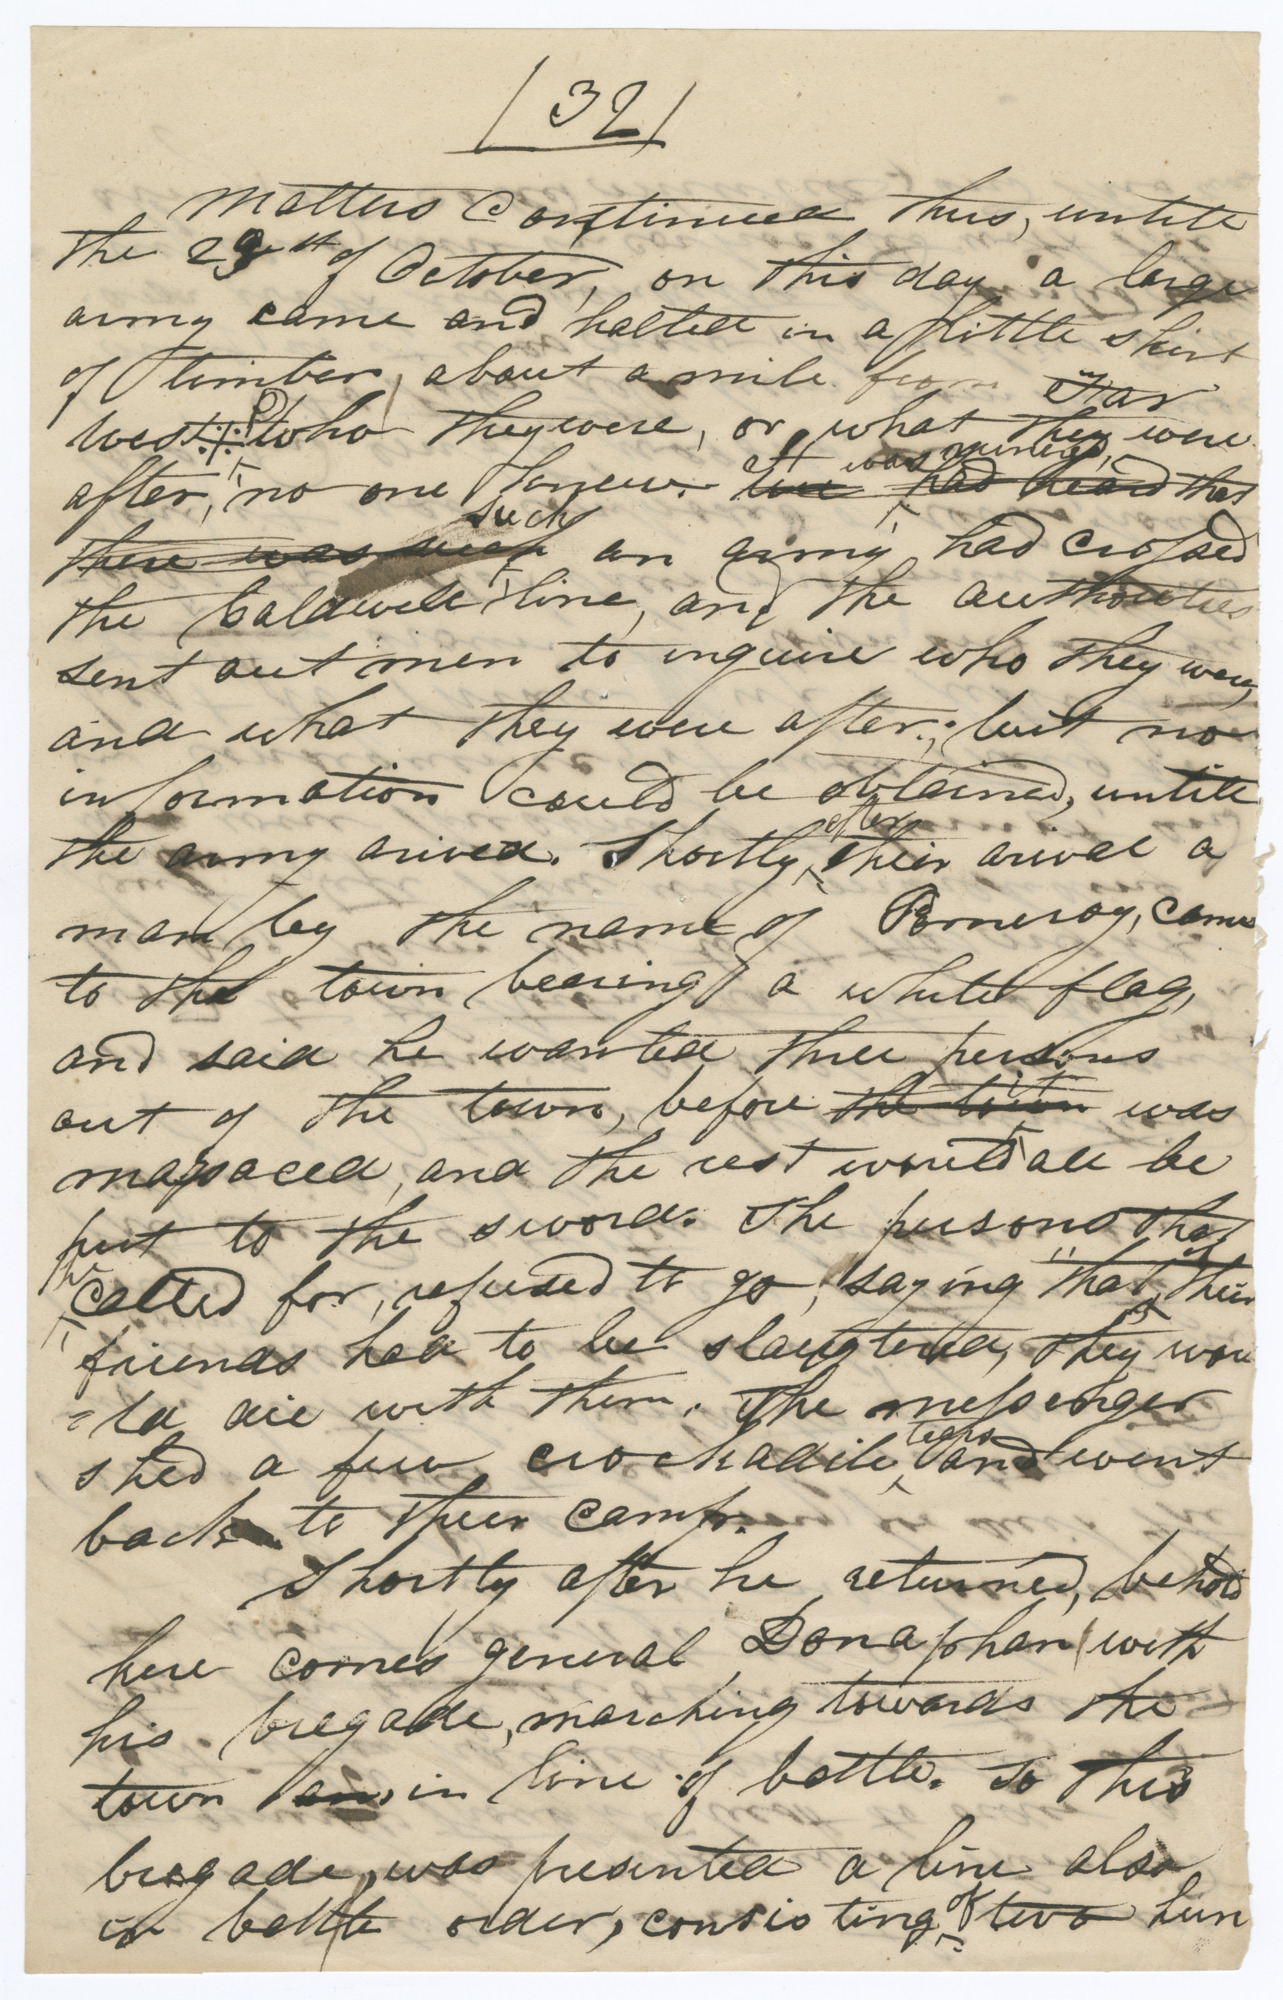 32
Matters Continued thus, untill
the 29th of October, on this day a large
army came and halted in a little skirt
of timber, about a mile from Far
west. who they were, or what they were
after, no one knew. It was rumered, we had heard that
there was such such an army had crossed
the Caldwell line, and the authorities
sent out men to inquire who they were,
and what they were after; but no
information could be obtained, untill
the army arived. Shortly, after their arival a
man by the name of Pomeroy, came
to the town bearing a white flag,
and said he wanted three persons
out of the town, before the town it was
massaced, and the rest would all be
put to the sword. The persons that
he called for, refused to go, saying "that if their
friends had to be slaugtered, they wou
=ld die with them. The messenger
shed a few crockadile tears and went
back to their camp.
Shortly after he returned, behold
here comes general Donaphan with
his bregade, marching towards the
town in line of battle. To this
bregade, was presented a line also
in battle order, consisting of two hun